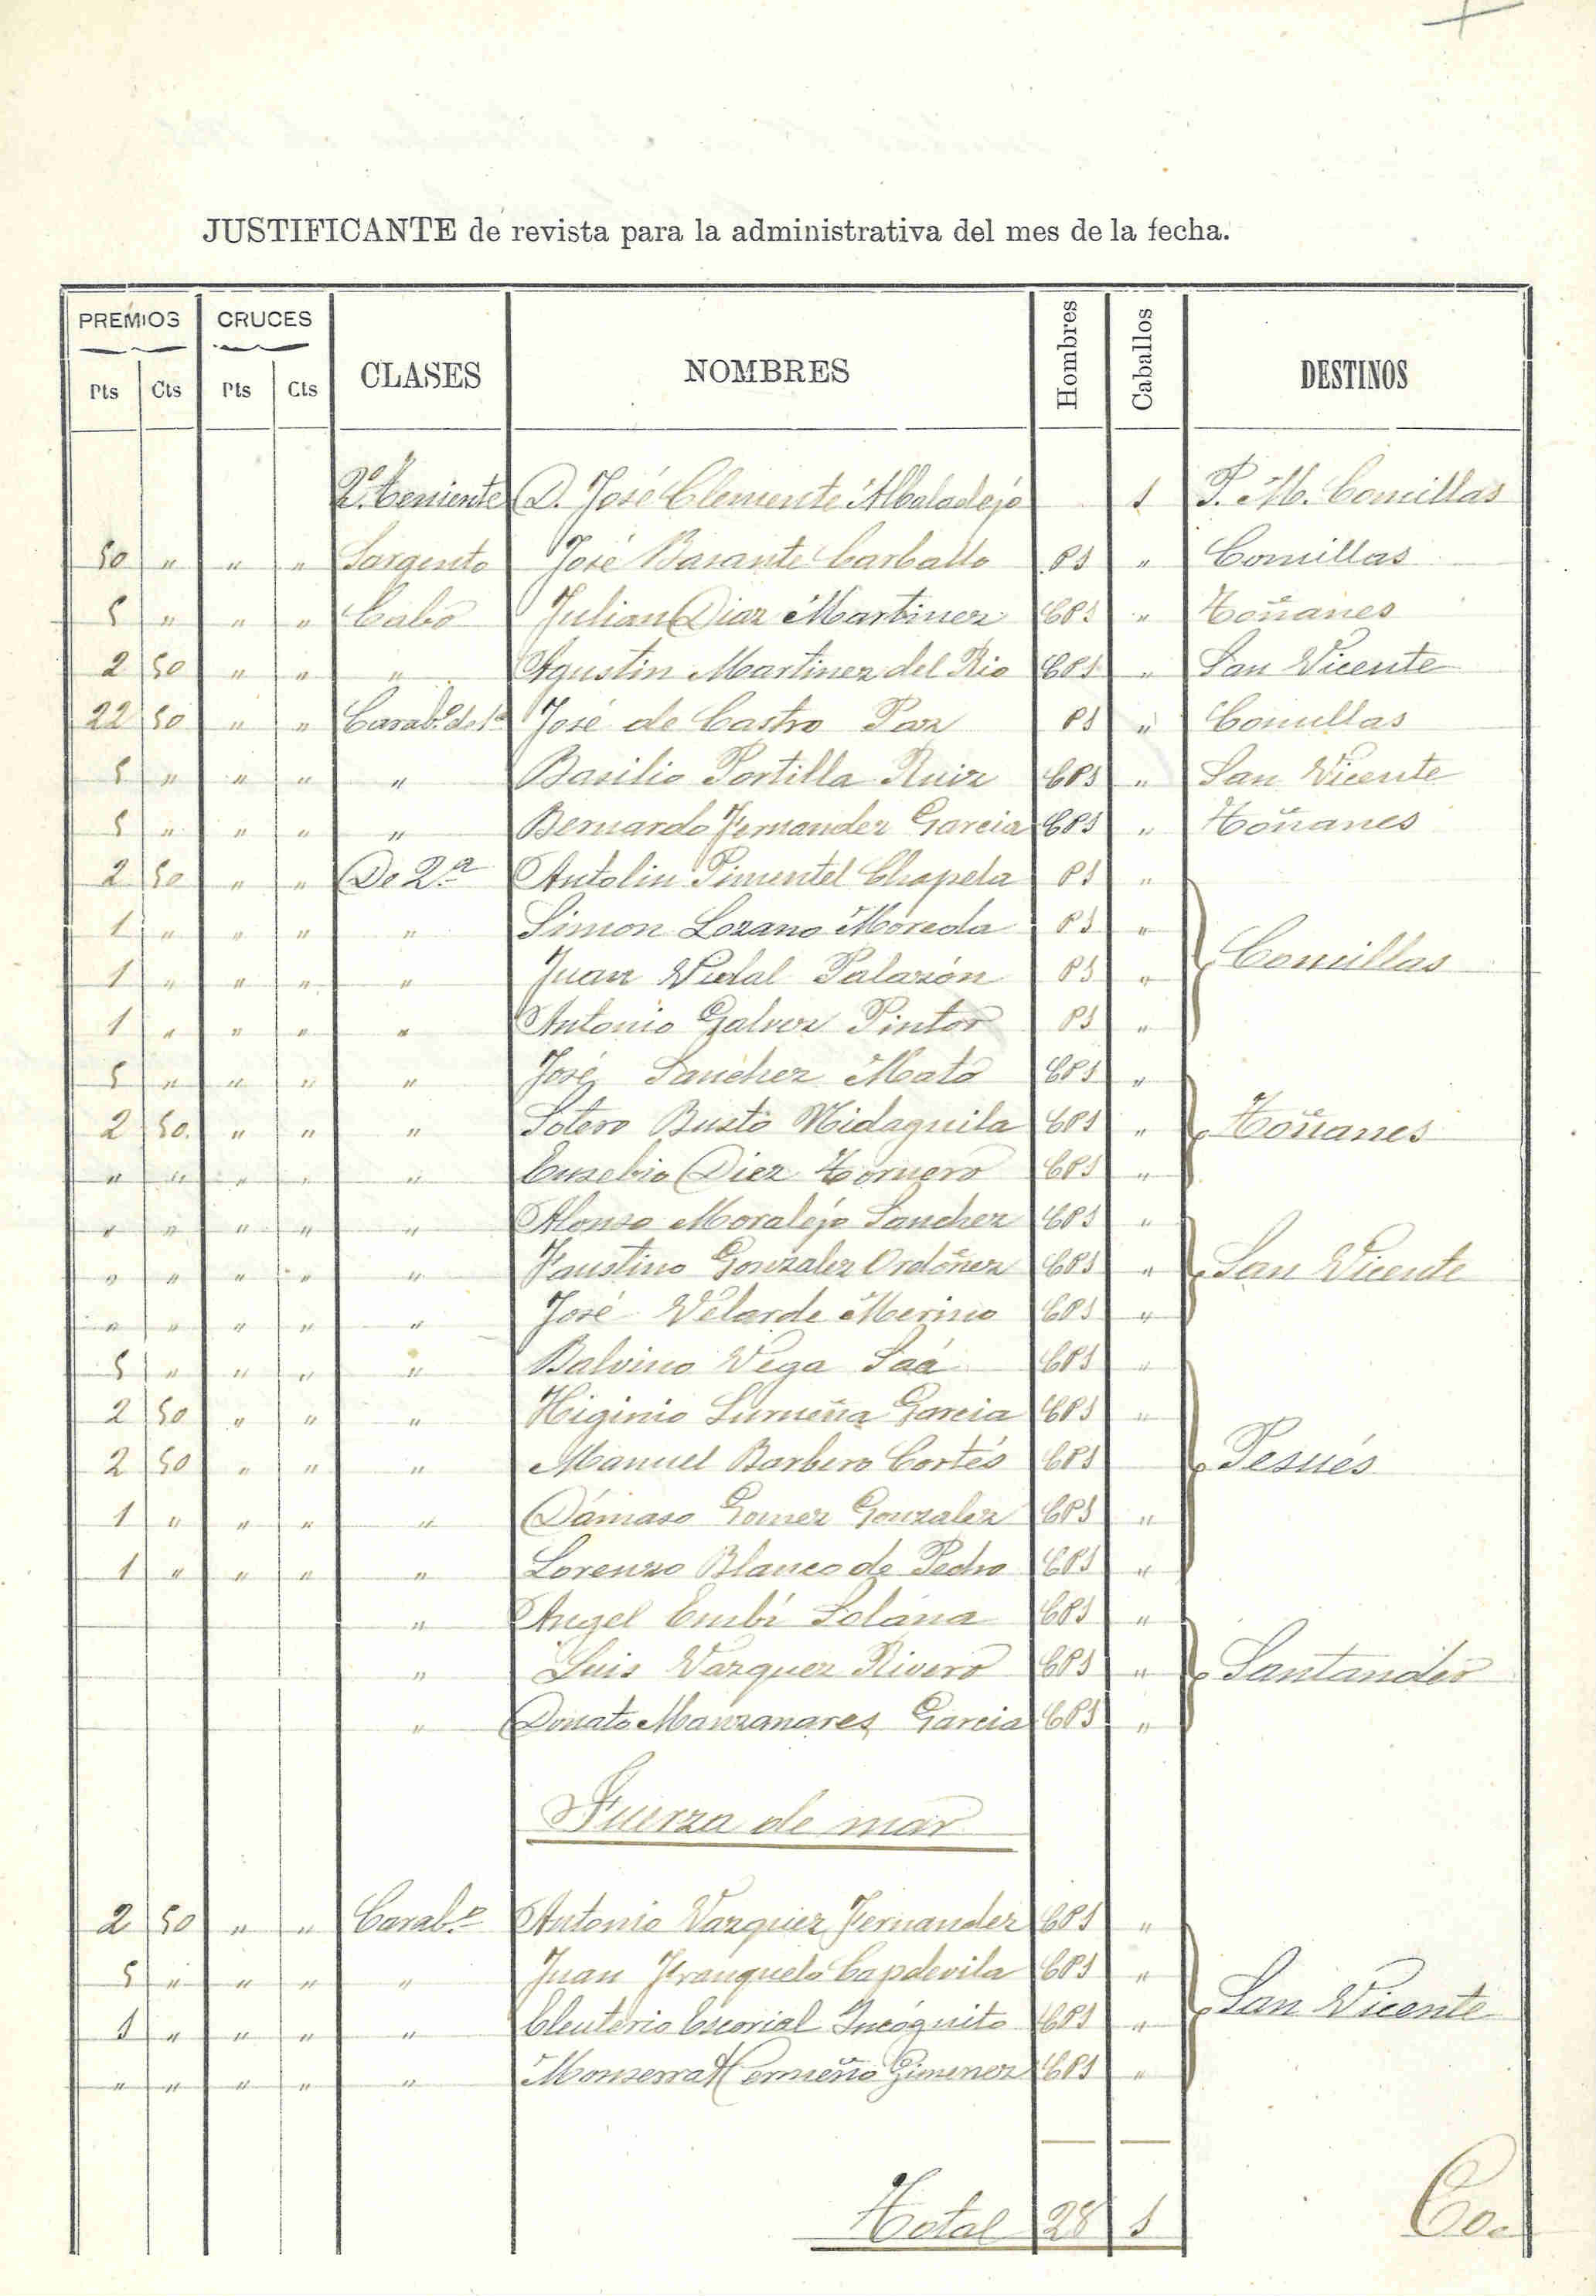 JUSTIFICANTE de revista para la administrativa del mes de la fecha.
PREMIOS CRUCES CLASES NOMBRES Hombres Caballos DESTINOS
Pts Cts Pts Cts
2º Teniente D. José Clemente Albaladejo 1 P. M. Comillas
50 " " " Sargento José Basante Carballo PS " Comillas
5 " " " Cabo Julian Diaz Martinez CPS " Toñanes
2 50 " " " Agustin Martinez del Rio CPS " San Vicente
22 50 " " Carabº de 1ª José de Castro Paz PS " Comillas
5 " " " " Basilio Portilla Ruiz CPS " San Vicente
5 " " " " Bernardo Fernandez Garcia CPS " Toñanes
2 50 " " De 2ª Antolin Pimentel Chapela PS "
1 " " " " Simon Lozano Moreda PS "
Comillas
1 " " " " Juan Vidal Palazón PS "
1 " " " " Antonio Galvez Pintor PS "
5 " " " " José Sanchez Mato CPS "
2 50. " " " Sotero Busto Midaguila CPS " Toñanes
" " " " " Eusebio Diez Tornero CPS "
" " " " " Alonso Moralejo Sanchez CPS "
" " " " " Faustino Gonzalez Ordóñez CPS " San Vicente
" " " " " José Velarde Merino CPS "
5 " " " " Balvino Vega Saá CPS "
2 50 " " " Higinio Surueña Garcia CPS "
2 50 " " " Manuel Barbero Cortés CPS Pesués
1 " " " " Dámaso Gomez Gonzalez CPS "
1 " " " " Lorenzo Blanco de Pedro CPS "
" Angel Embí Solana CPS "
" Luis Vazquez Rivero CPS " Santander
" Donato Manzanares Garcia CPS "
Fuerza de mar
2 50 " " Carabº Antonio Vazquez Fernandez CPS "
5 " " " " Juan Franquelo Capdevila CPS "
San Vicente
1 " " " " Eleuterio Escorial Incógnito CPS "
" " " " " Monserrat Gimenez CPS "
Total 28 1
Co.